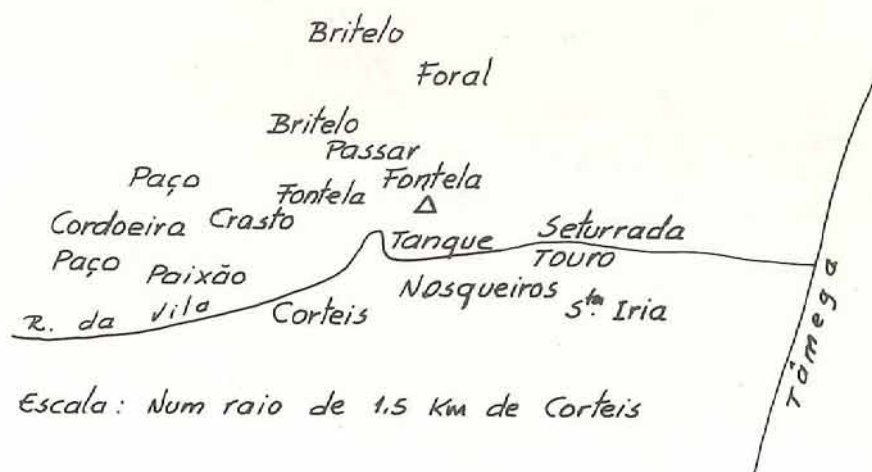 Britelo
Foral
Britelo
Passar
Paço
Fontela
Fontela
Cordoeira
Crasto
Tanque
Seturrada
Touro
Paço
Paixão
Nosqueiros
Sta. Iria
R. da Vila
Corteis
Tâmega
Escala: Num raio de 1.5 Km de Corteis